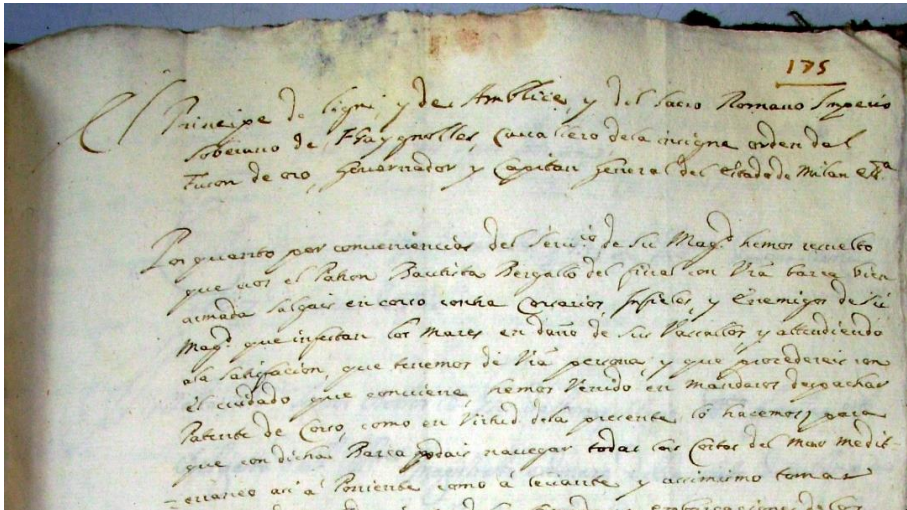 175
El Principe de Ligni, y de Amblice, y del Sacro Romano Imperio
Soberano de Fhaygnolles, Cavallero dela insigne orden del
Tuson de oro, Governador y Capitan General del Estado de Milan etta
Por quanto por conveniencias del Servio de Su Magd hemos resuelto
que vos el Patron Bautista Bergallo del final con Vra barca bien
armada salgais en corso contra Corsarios, Infieles, y Enemigos de Su
Magd que infestan los mares en daño de sus Vassallos y attendiendo
ala satisfacion, que tenemos de Vra persona, y que procedereis con
el cuidado que conviene, hemos Venido en mandaros despachar
Patente de Corso, como en Virtud dela presente lo hacemos, para
que con dicha Barca podais navegar todas las Costas del Mar Medit-
-erraneo asi a Poniente como a levante y assimismo tomar
embarcaciones de los